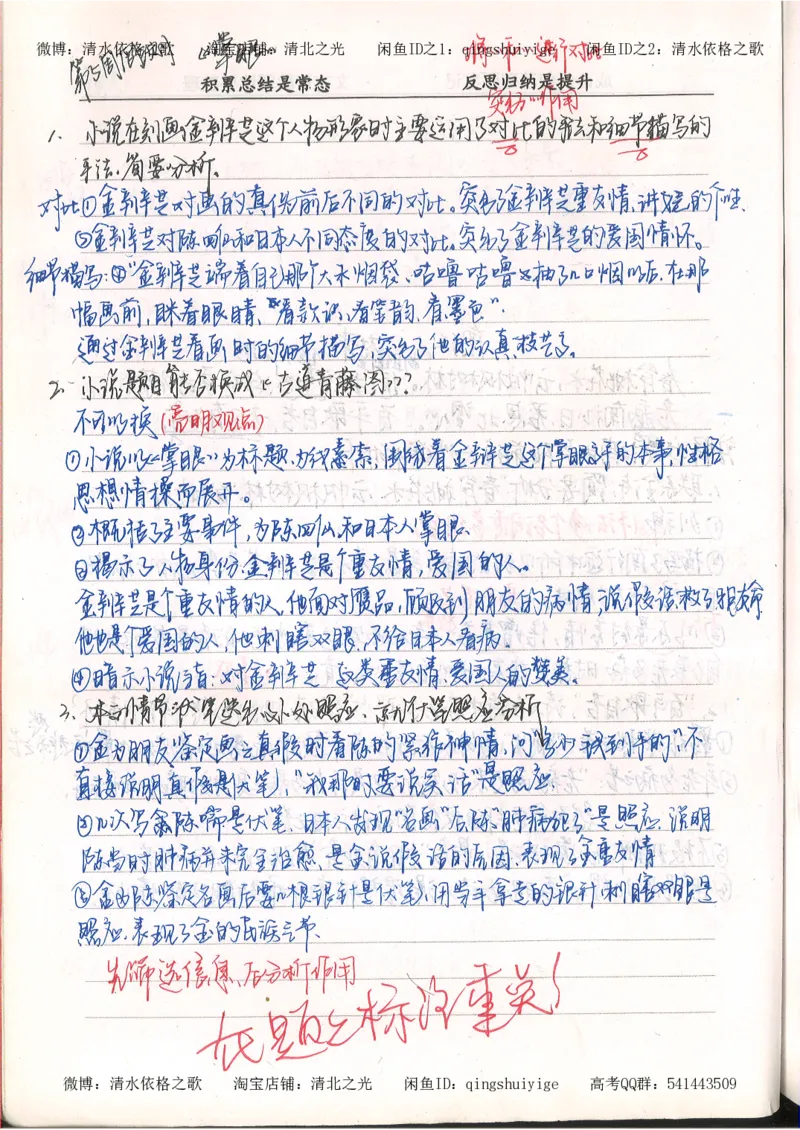 微博：清水依格之歌 淘宝店铺：清北之光 闲鱼ID之1：qingshuiyige 闲鱼ID之2：清水依格之歌
《掌眼》 进行对比
积累总结是常态 反思归纳是提升
突出 作用
1. 小说在刻画金判泮芝这个人物形象时主要运用了对比的手法和细节描写的
手法，简要分析。
对比①金判泮芝对画的真伪前后不同的对比。突出了金判泮芝重友情、讲的个性
②金判泮芝对陈四仙和日本人不同态度的对比。突出了金判泮芝的爱国情怀。
细节描写：④“金判泮芝端着自己那个大水烟袋、咕噜咕噜又抽了几口烟以后，在那
幅画前，眯着眼睛，“看款识，看笔韵，看墨色”.
通过金判泮芝看画时的细节描写，突出了他的认真，技艺高。
2. 小说题目能否换成《古道青藤图》？
不可以换（写明观点）
①小说以“掌眼”为标题，为线索，围绕着金判泮芝这个掌眼高手的本事，性格
思想情操而展开。
②概括了主要事件，为陈四仙和日本人掌眼
③揭示了人物身份，金判泮芝是个重友情，爱国的人。
金判泮芝是个重友情的人，他面对赝品，顾及到朋友的病情，说假话，救了朋友命
他也是个爱国的人，他刺瞎双眼，不给日本人看病。
④暗示小说主旨：对金判泮芝 这类重友情、爱国人的赞美。
3. 本文情节伏笔 多处照应，就伏笔照应分析
①金为朋友鉴定画之真假时看陈的紧张神情，问“多少钱到手的”不
直接说明真假是伏笔，“我那时要说实话”是照应.
②几次写 陈嘴是伏笔，日本人发现“名画”后陈“肺病死了”是照应，说明
陈当时肺病并未完全治愈，是金说假话的原因，表现了金重友情
③金为陈鉴定名画后要几根银针是伏笔，用当年拿走的银针刺瞎双眼是
照应，表现了金的民族气节.
先筛选信息，后分析作用
此题目标没重要！
微博：清水依格之歌 淘宝店铺：清北之光 闲鱼ID：qingshuiyige 高考QQ群：541443509